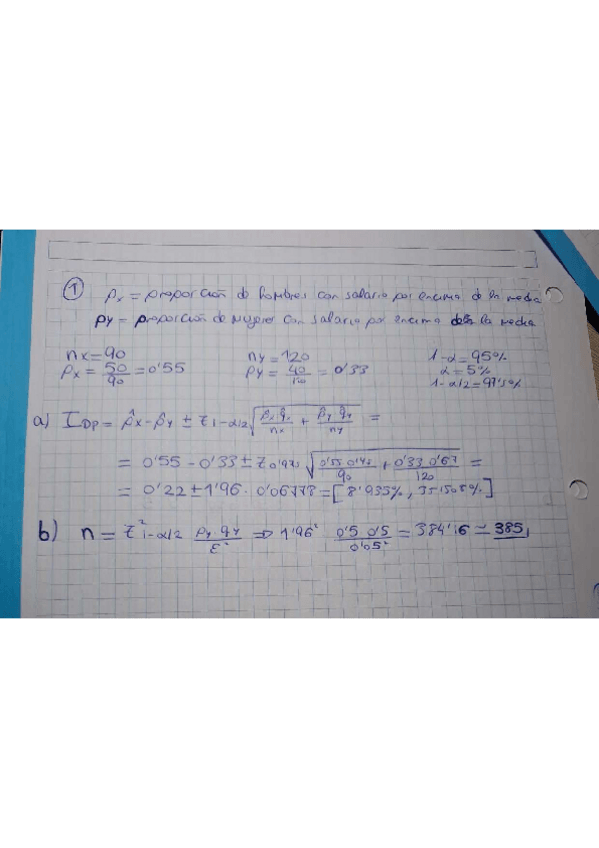 ① Px = proporción de hombres con salario por encima de la media
Py = proporción de mujeres con salario por encima de la media
nx = 90 ny = 120 1-α = 95%
Px = 50/90 = 0'55 Py = 40/120 = 0'33 α = 5%
1-α/2 = 97'5%
a) IDP = p̂x - p̂y ± z1-α/2 √(p̂x q̂x/nx + p̂y q̂y/ny) =
= 0'55 - 0'33 ± z0'975 √(0'55 0'45/90 + 0'33 0'67/120) =
= 0'22 ± 1'96 · 0'06778 = [8'935%, 35'1505%]
b) n = z²1-α/2 py·qy/ε² ⇒ 1'96² 0'5 0'5/0'05² = 384'16 ≃ 385